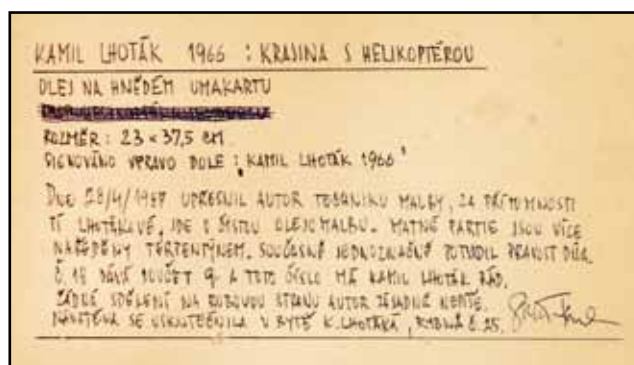 KAMIL LHOTÁK 1966 : KRAJINA S HELIKOPTÉROU
OLEJ NA HNĚDÉM UMAKARTU
ROZMĚR : 23 × 37,5 CM
SIGNOVÁNO VPRAVO DOLE : "KAMIL LHOTÁK 1966"
DNE 28/4/1987 UPŘESNIL AUTOR TECHNIKU MALBY, ZA PŘÍTOMNOSTI
PÍ LHOTÁKOVÉ, JDE O ČISTOU OLEJOMALBU. MATNÉ PARTIE JSOU VÍCE
NAŘEDĚNY TERPENTÝNEM. SOUČASNĚ JEDNOZNAČNĚ POTVRDIL PRAVOST DÍLA.
Č. 18 DÁVÁ SOUČET 9 A TOTO ČÍSLO MÁ KAMIL LHOTÁK RÁD.
ŽÁDNÉ SDĚLENÍ NA RUBOVOU STRANU AUTOR ZÁSADNĚ NEPÍŠE.
NÁVŠTĚVA SE USKUTEČNILA V BYTĚ K. LHOTÁKA, RYBNÁ Č. 25.